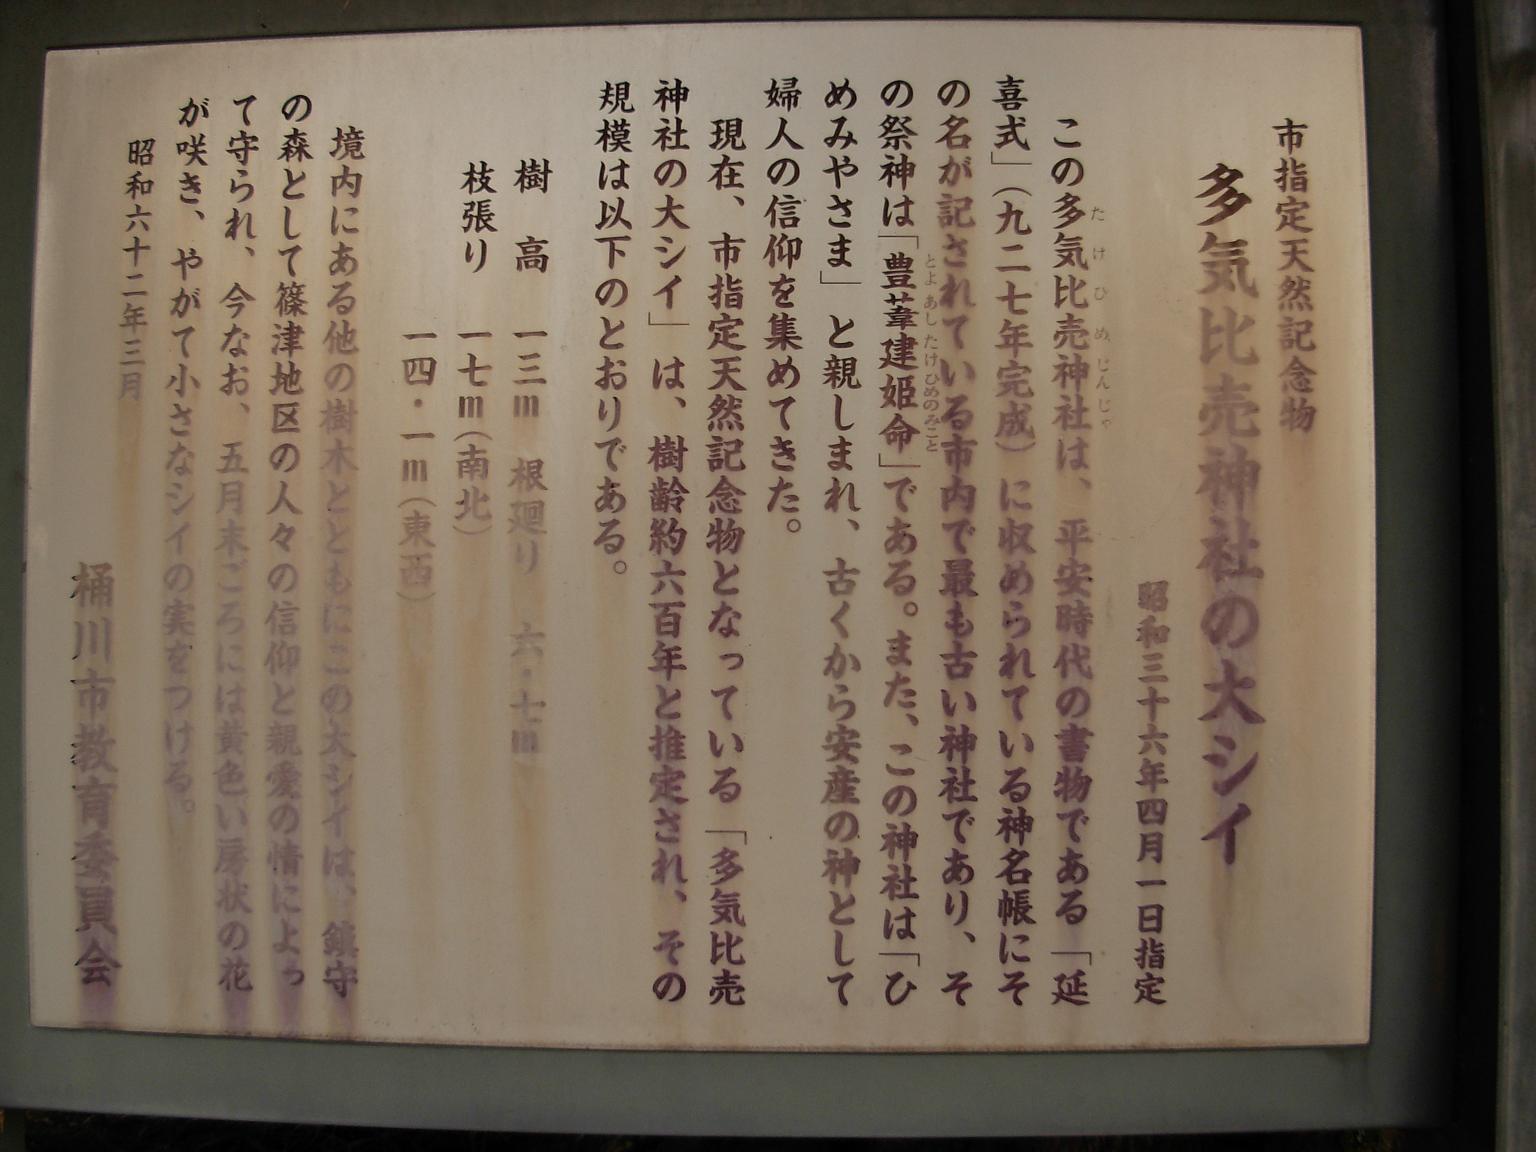 市指定天然記念物
多気比売神社の大シイ
昭和三十六年四月一日指定
この多気比売神社は、平安時代の書物である「延
たけひめじんじゃ
喜式」（九二七年完成）に収められている神名帳にそ
の名が記されている市内で最も古い神社であり、そ
の祭神は「豊葦建姫命」である。また、この神社は「ひ
とよあしたけひめのみこと
めみやさま」と親しまれ、古くから安産の神として
婦人の信仰を集めてきた。
現在、市指定天然記念物となっている「多気比売
神社の大シイ」は、樹齢約六百年と推定され、その
規模は以下のとおりである。
樹　高　一三m　根廻り　六・七m
枝張り　一七m（南北）
一四・一m（東西）
境内にある他の樹木とともにこの大シイは、鎮守
の森として篠津地区の人々の信仰と親愛の情によっ
て守られ、今なお、五月末ごろには黄色い房状の花
が咲き、やがて小さなシイの実をつける。
昭和六十二年三月
桶川市教育委員会